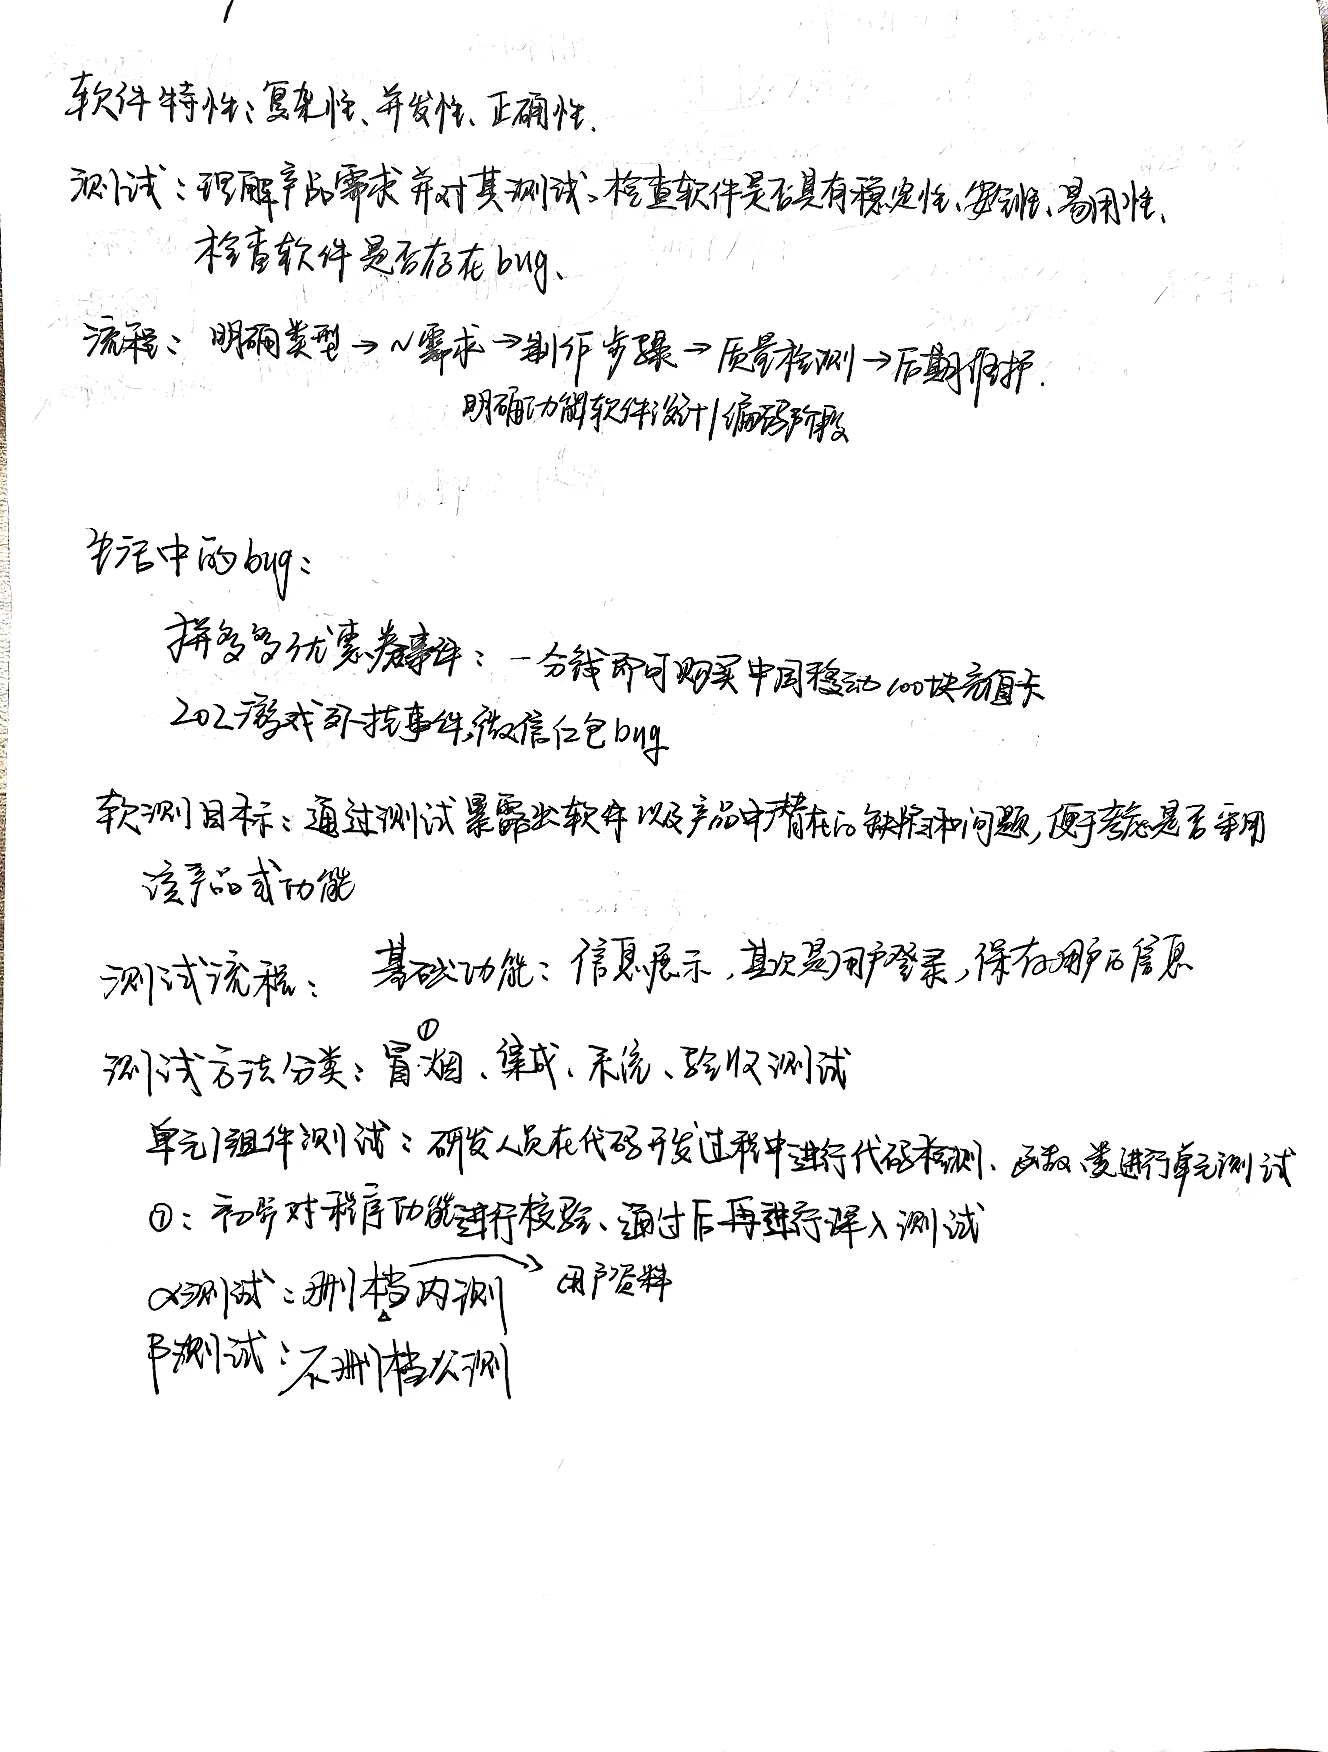 软件特性:复杂性、并发性、正确性.
测试:理解产品需求并对其测试、检查软件是否具有稳定性、安全性、易用性、
检查软件是否存在bug、
流程:明确类型→~需求→制作步骤→质量检测→后期维护.
明确功能软件设计/编码阶段
生活中的bug:
拼多多优惠券事件:一分钱即可购买中国移动100块充值卡
202游戏外挂事件,微信红包bug
软测目标:通过测试暴露出软件以及产品中潜在的缺陷和问题,便于考虑是否采用
该产品或功能
测试流程: 基础功能:信息展示,其次是用户登录,保存用户的信息
①
测试方法分类:冒烟、集成、系统、验收测试
单元/组件测试:研发人员在代码开发过程中进行代码检测、函数、类进行单元测试
①:初步对程序功能进行校验、通过后再进行深入测试
α测试:删档内测→用户资料
β测试:不删档公测